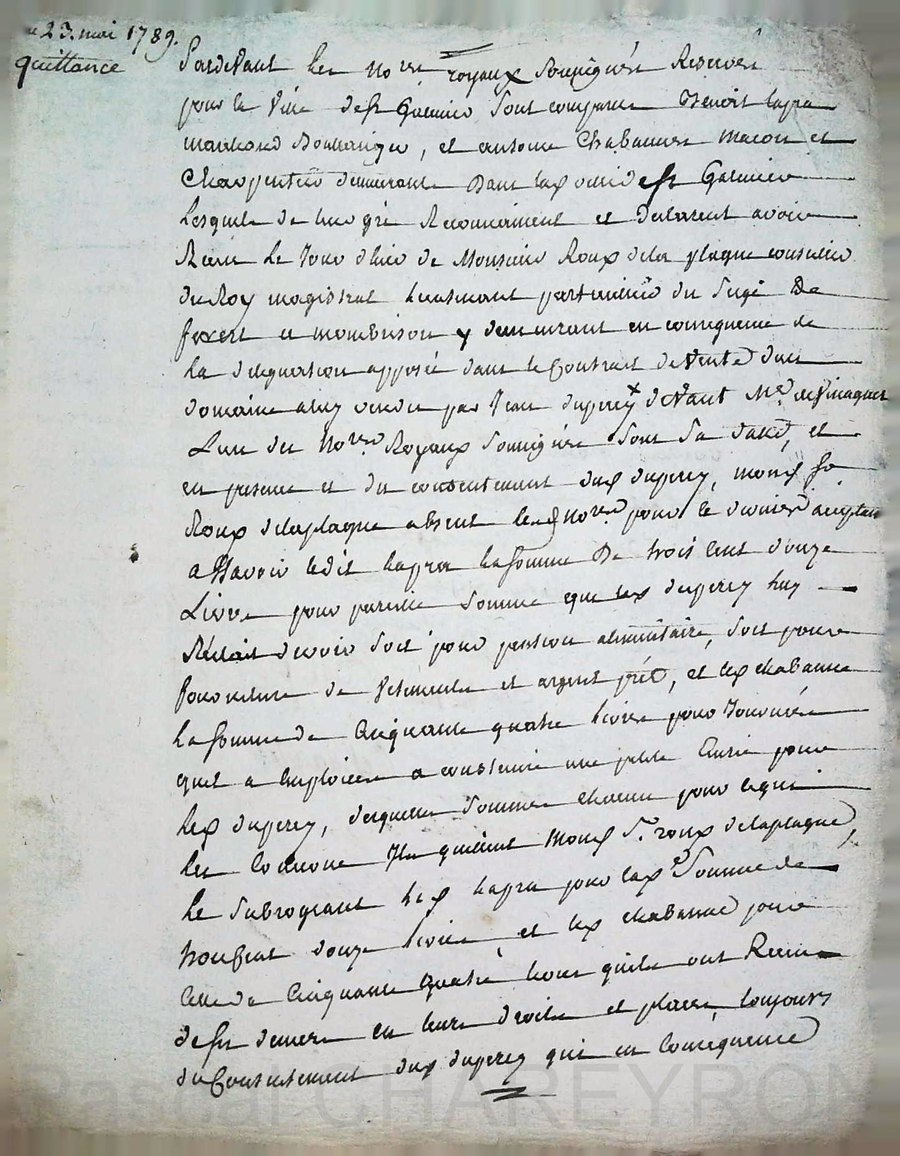 23. mai 1789.
quittance
Pardevant les No.res royaux soussignés Réservés
pour la ville de St Galmier sont comparus Benoit Lapra
marchand Boulanger, et antoine Chabanne macon et
Charpentier demeurants dans lad. ville de St Galmier
Lesquels de leur gré Reconnaissent et déclarent avoir
Recu le Jour d'hier de Monsieur Roux dela plagne conseiller
du Roy magistrat au siege De
forest a montbrison y demeurant en consequence de
la delegation apposée dans le Contrat de Vente d'un
domaine a luy vendu par Jean duperey devant Me.
L'un des No.res Royaux soussignés sous sa datte, et
en presence et du consentement dud. duperey, mond. Sr
Roux delaplagne absent lesd. No.res pour le dernier acceptant
a Savoir ledit Lapra la somme De trois cent douze
Livres pour pareille somme que led. duperey luy
Restait devoir soit pour pension alimentaire, soit pour
fourniture de vetements et argent prêté, et led. chabanne
la somme de Cinquante quatre livres pour Journées
quil a Employées a construire une petite Ecurie pour
led. duperey, desquelles sommes chacun pour ce qui
les Concerne Ils quittent mond. Sr. roux delaplagne,
le subrogeant led. Lapra pour lad. somme de
trois cent douze livres, et led. chabanne pour
Celle de Cinquante quatre livres quils ont Recues
de ses deniers en leurs droits et places, toujours
du Consentement dud. duperey qui en Consequence
Pascal CHAREYRON